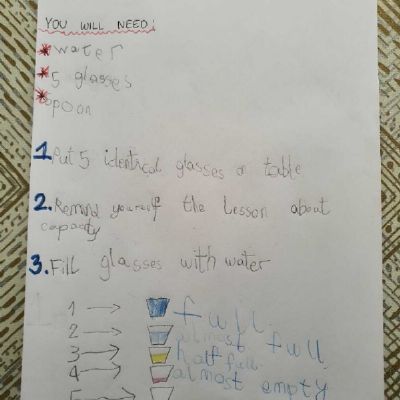 YOU WILL NEED:
* water
* 5 glasses
* spoon
1. Put 5 identical glasses on table
2. Remind yourself the lesson about
capacity
3. Fill glasses with water
1 → full
2 → almost full
3 → half full
4 → almost empty
5 →